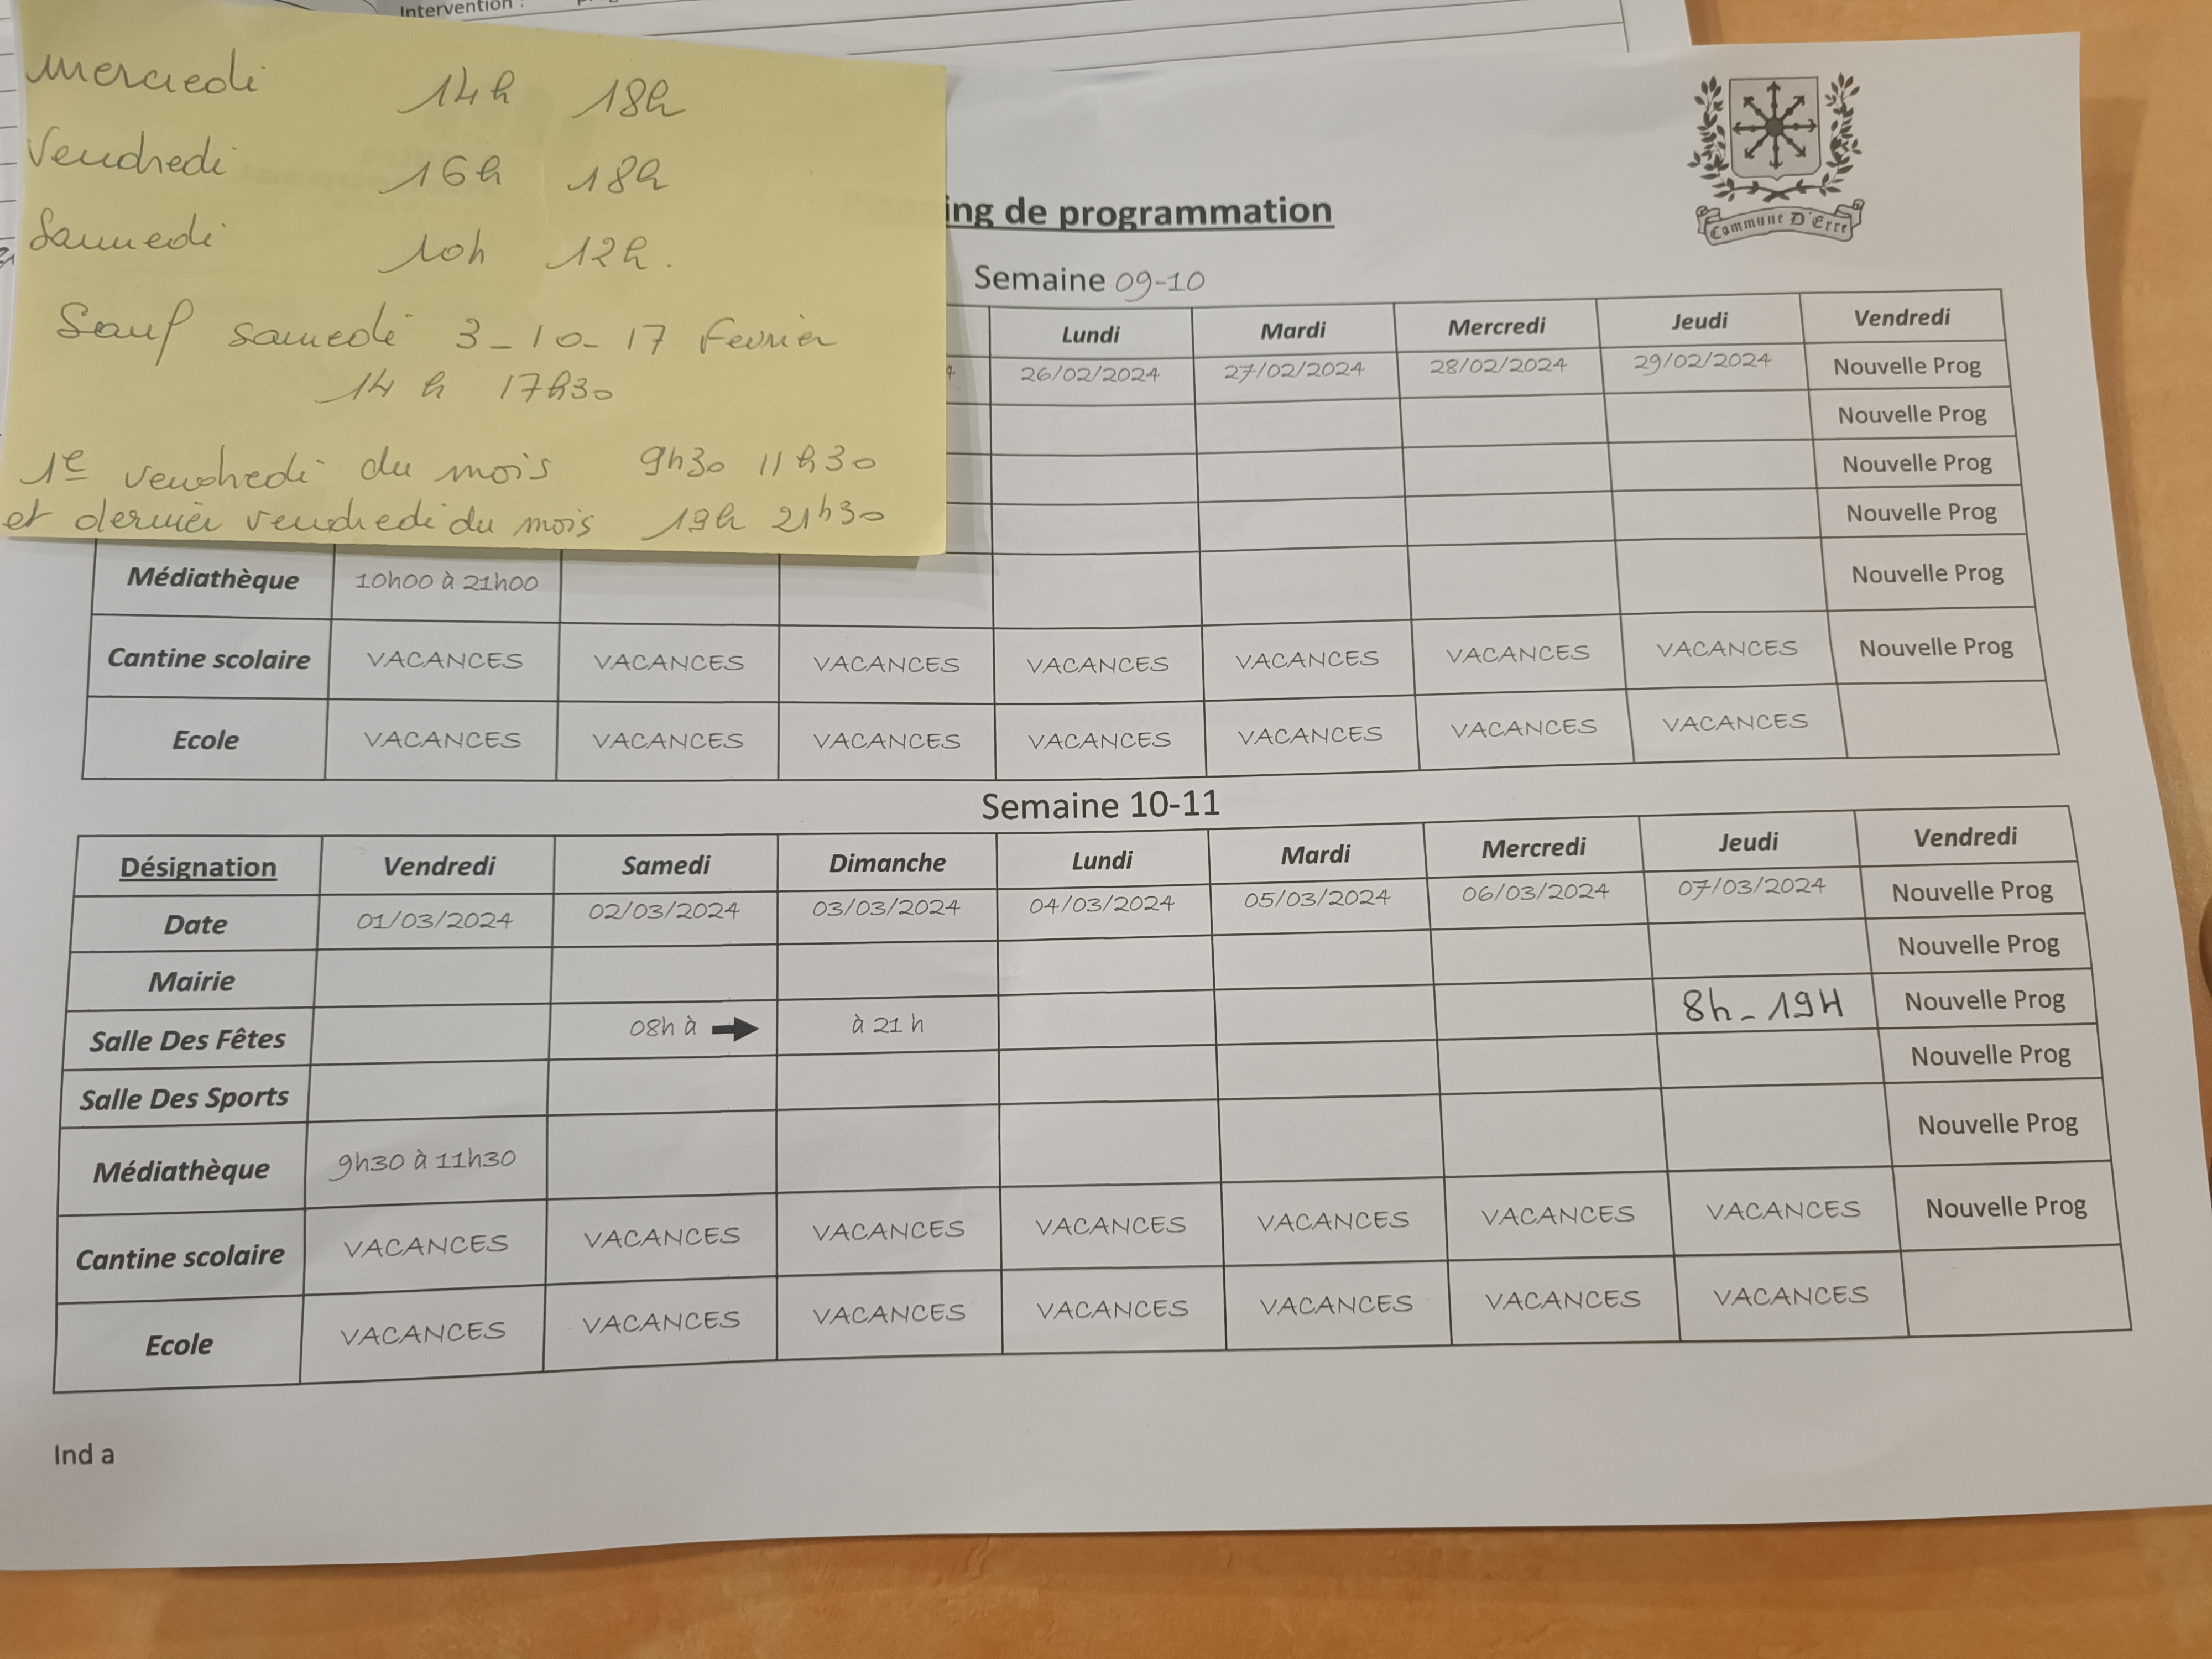 Intervention :
Mercredi 14h 18h
Vendredi 16h 18h
Samedi 10h 12h.
Sauf samedi 3-10-17 Fevrier
14 h 17h30
1e vendredi du mois 9h30 11h30
et dernier vendredi du mois 19h 21h30
Commune D'Erre
ing de programmation
Semaine 09-10
Lundi Mardi Mercredi Jeudi Vendredi
26/02/2024 27/02/2024 28/02/2024 29/02/2024 Nouvelle Prog
Nouvelle Prog
Nouvelle Prog
Nouvelle Prog
Médiathèque 10h00 à 21h00 Nouvelle Prog
Cantine scolaire VACANCES VACANCES VACANCES VACANCES VACANCES VACANCES VACANCES Nouvelle Prog
Ecole VACANCES VACANCES VACANCES VACANCES VACANCES VACANCES VACANCES
Semaine 10-11
Désignation Vendredi Samedi Dimanche Lundi Mardi Mercredi Jeudi Vendredi
Date 01/03/2024 02/03/2024 03/03/2024 04/03/2024 05/03/2024 06/03/2024 07/03/2024 Nouvelle Prog
Mairie Nouvelle Prog
Salle Des Fêtes 08h à à 21 h 8h_19H Nouvelle Prog
Salle Des Sports Nouvelle Prog
Médiathèque 9h30 à 11h30 Nouvelle Prog
Cantine scolaire VACANCES VACANCES VACANCES VACANCES VACANCES VACANCES VACANCES Nouvelle Prog
Ecole VACANCES VACANCES VACANCES VACANCES VACANCES VACANCES VACANCES
Ind a